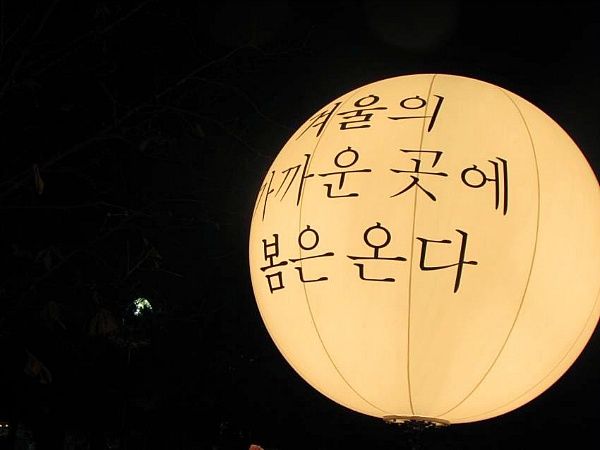 겨울의
가까운 곳에
봄은 온다